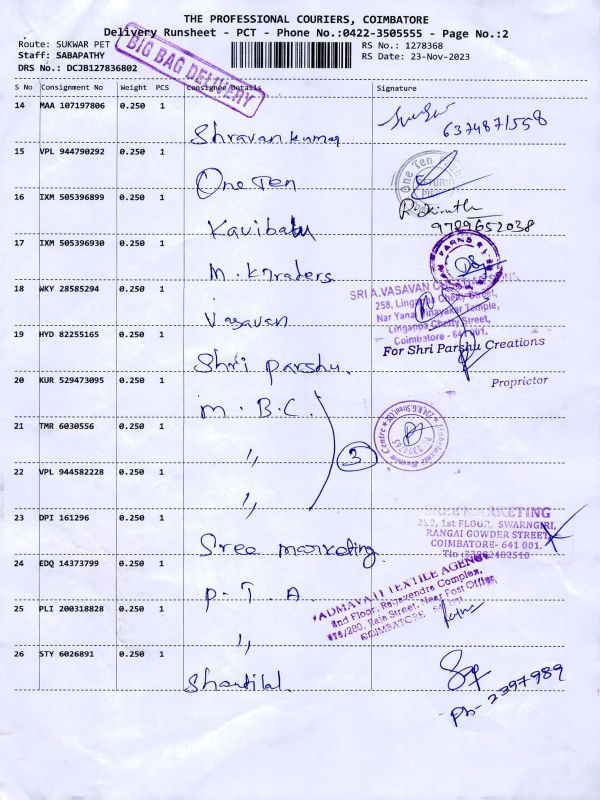 THE PROFESSIONAL COURIERS, COIMBATORE
Delivery Runsheet - PCT - Phone No.:0422-3505555 - Page No.:2
Route: SUKWAR PET
RS No.: 1278368
Staff: SABAPATHY
RS Date: 23-Nov-2023
DRS No.: DCJB127836802
BIG BAG DELIVERY
S No Consignment No Weight PCS Consignee Details Signature
14 MAA 107197806 0.250 1
Shravan kumar
15 VPL 944790292 0.250 1
One Ten
One Ten
16 IXM 505396899 0.250 1
Kavibalu
9789652038
17 IXM 505396930 0.250 1
M.K Traders
18 WKY 28585294 0.250 1
Vasavan
SRI A.VASAVAN
258, Lingappa Chetty Street,
Nar Yanai Vinayakar Temple,
Lingappa Chetty Street,
Coimbatore - 641 001.
19 HYD 82255165 0.250 1
Shri parshu.
For Shri Parshu Creations
Proprietor
20 KUR 529473095 0.250 1
M.B.C.
21 TMR 6030556 0.250 1
"
3
22 VPL 944582228 0.250 1
"
23 DPI 161296 0.250 1
Sree marketing
MARKETING
1st FLOOR, SWARNGIRI,
RANGAI GOWDER STREET
COIMBATORE- 641 001.
24 EDQ 14373799 0.250 1
P.T.A
PADMAVATI TEXTILE AGENCY
2nd Floor, Ragavendra Complex,
Raja Street, Near Post Office,
COIMBATORE
25 PLI 200318828 0.250 1
"
26 STY 6026891 0.250 1
Shantilal.
ph- 2397989